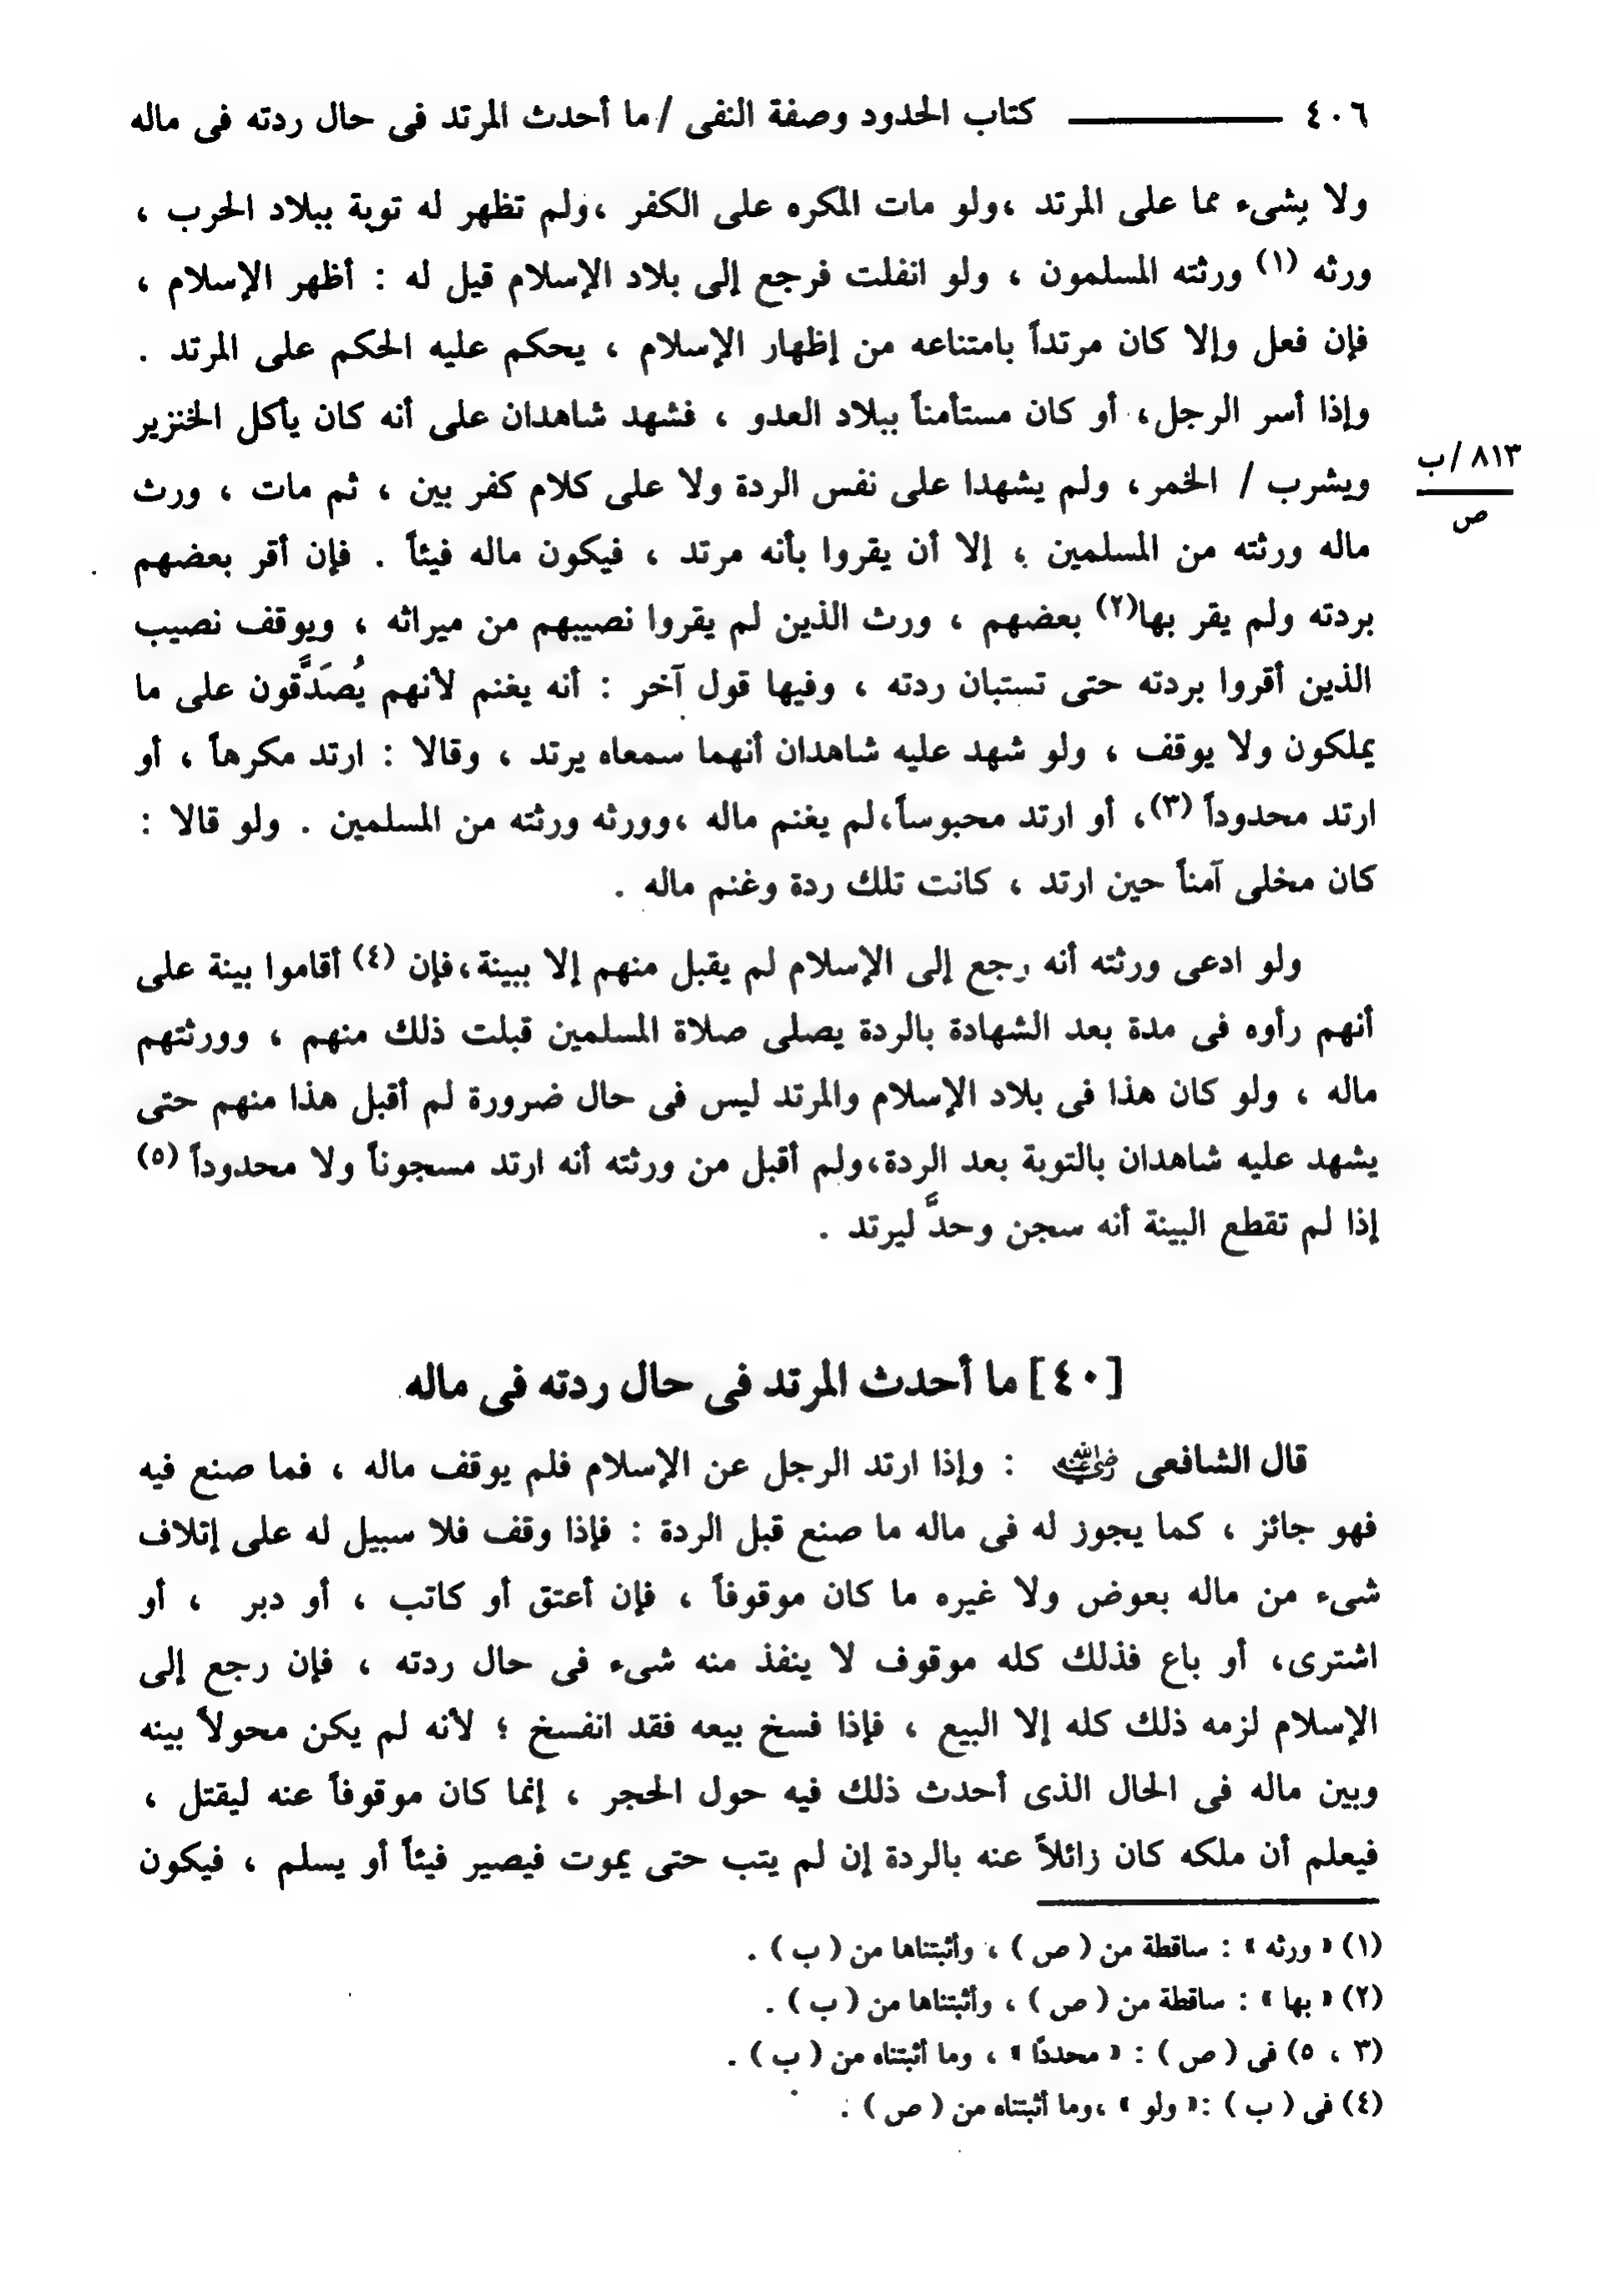 ٤٠٦ ــــــــــ كتاب الحدود وصفة النفى / ما أحدث المرتد فى حال ردته فى ماله
ولا بشىء مما على المرتد ،ولو مات المكره على الكفر ،ولم تظهر له توبة ببلاد الحرب ،
ورثه (١) ورثته المسلمون ، ولو انفلت فرجع إلى بلاد الإسلام قيل له : أظهر الإسلام ،
فإن فعل وإلا كان مرتداً بامتناعه من إظهار الإسلام ، يحكم عليه الحكم على المرتد .
وإذا أسر الرجل، أو كان مستأمناً ببلاد العدو ، فشهد شاهدان على أنه كان يأكل الخنزير
ويشرب / الخمر، ولم يشهدا على نفس الردة ولا على كلام كفر بين ، ثم مات ، ورث
٨١٣ /ب
ص
ماله ورثته من المسلمين ، إلا أن يقروا بأنه مرتد ، فيكون ماله فيئاً . فإن أقر بعضهم
بردته ولم يقر بها(٢) بعضهم ، ورث الذين لم يقروا نصيبهم من ميراثه ، ويوقف نصيب
الذين أقروا بردته حتى تستبان ردته ، وفيها قول آخر : أنه يغنم لأنهم يُصَدَّقون على ما
يملكون ولا يوقف ، ولو شهد عليه شاهدان أنهما سمعاه يرتد ، وقالا : ارتد مكرهاً ، أو
ارتد محدوداً (٣)، أو ارتد محبوساً،لم يغنم ماله ،وورثه ورثته من المسلمين . ولو قالا :
كان مخلى آمناً حين ارتد ، كانت تلك ردة وغنم ماله .
ولو ادعى ورثته أنه رجع إلى الإسلام لم يقبل منهم إلا ببينة،فإن (٤) أقاموا بينة على
أنهم رأوه فى مدة بعد الشهادة بالردة يصلى صلاة المسلمين قبلت ذلك منهم ، وورثتهم
ماله ، ولو كان هذا فى بلاد الإسلام والمرتد ليس فى حال ضرورة لم أقبل هذا منهم حتى
يشهد عليه شاهدان بالتوبة بعد الردة،ولم أقبل من ورثته أنه ارتد مسجوناً ولا محدوداً (٥)
إذا لم تقطع البينة أنه سجن وحدَّ ليرتد .
[٤٠] ما أحدث المرتد فى حال ردته فى ماله
قال الشافعى رضي الله عنه : وإذا ارتد الرجل عن الإسلام فلم يوقف ماله ، فما صنع فيه
فهو جائز ، كما يجوز له فى ماله ما صنع قبل الردة : فإذا وقف فلا سبيل له على إتلاف
شىء من ماله بعوض ولا غيره ما كان موقوفاً ، فإن أعتق أو كاتب ، أو دبر ، أو
اشترى، أو باع فذلك كله موقوف لا ينفذ منه شىء فى حال ردته ، فإن رجع إلى
الإسلام لزمه ذلك كله إلا البيع ، فإذا فسخ بيعه فقد انفسخ ؛ لأنه لم يكن محولاً بينه
وبين ماله فى الحال الذى أحدث ذلك فيه حول الحجر ، إنما كان موقوفاً عنه ليقتل ،
فيعلم أن ملكه كان زائلاً عنه بالردة إن لم يتب حتى يموت فيصير فيئاً أو يسلم ، فيكون
(١) « ورثه » : ساقطة من ( ص ) ، وأثبتناها من ( ب ) .
(٢) « بها » : ساقطة من ( ص ) ، وأثبتناها من ( ب ) .
(٣ ، ٥) فى ( ص ) : « محددًا » ، وما أثبتناه من ( ب ) .
(٤) فى ( ب ) :« ولو » ،وما أثبتناه من ( ص ) .